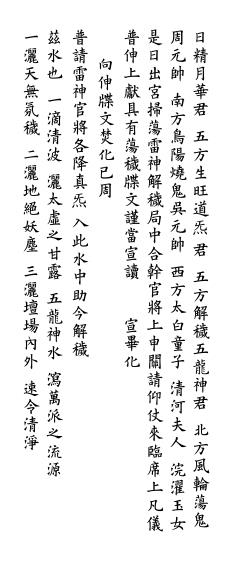 日精月華君　五方生旺道炁君　五方解穢五龍神君　北方風輪蕩鬼
周元帥　南方烏陽燒鬼吳元帥　西方太白童子　清河夫人　浣濯玉女
是日出宮掃蕩雷神解穢局中合幹官將上申關請仰仗來臨席上凡儀
普伸上獻具有蕩穢牒文謹當宣讀　　宣畢化
向伸牒文焚化已周
普請雷神官將各降真炁入此水中助令解穢
茲水也　一滴清波　灑太虛之甘露　五龍神水　瀉萬派之流源
一灑天無氛穢　二灑地絕妖塵　三灑壇場內外　速令清淨